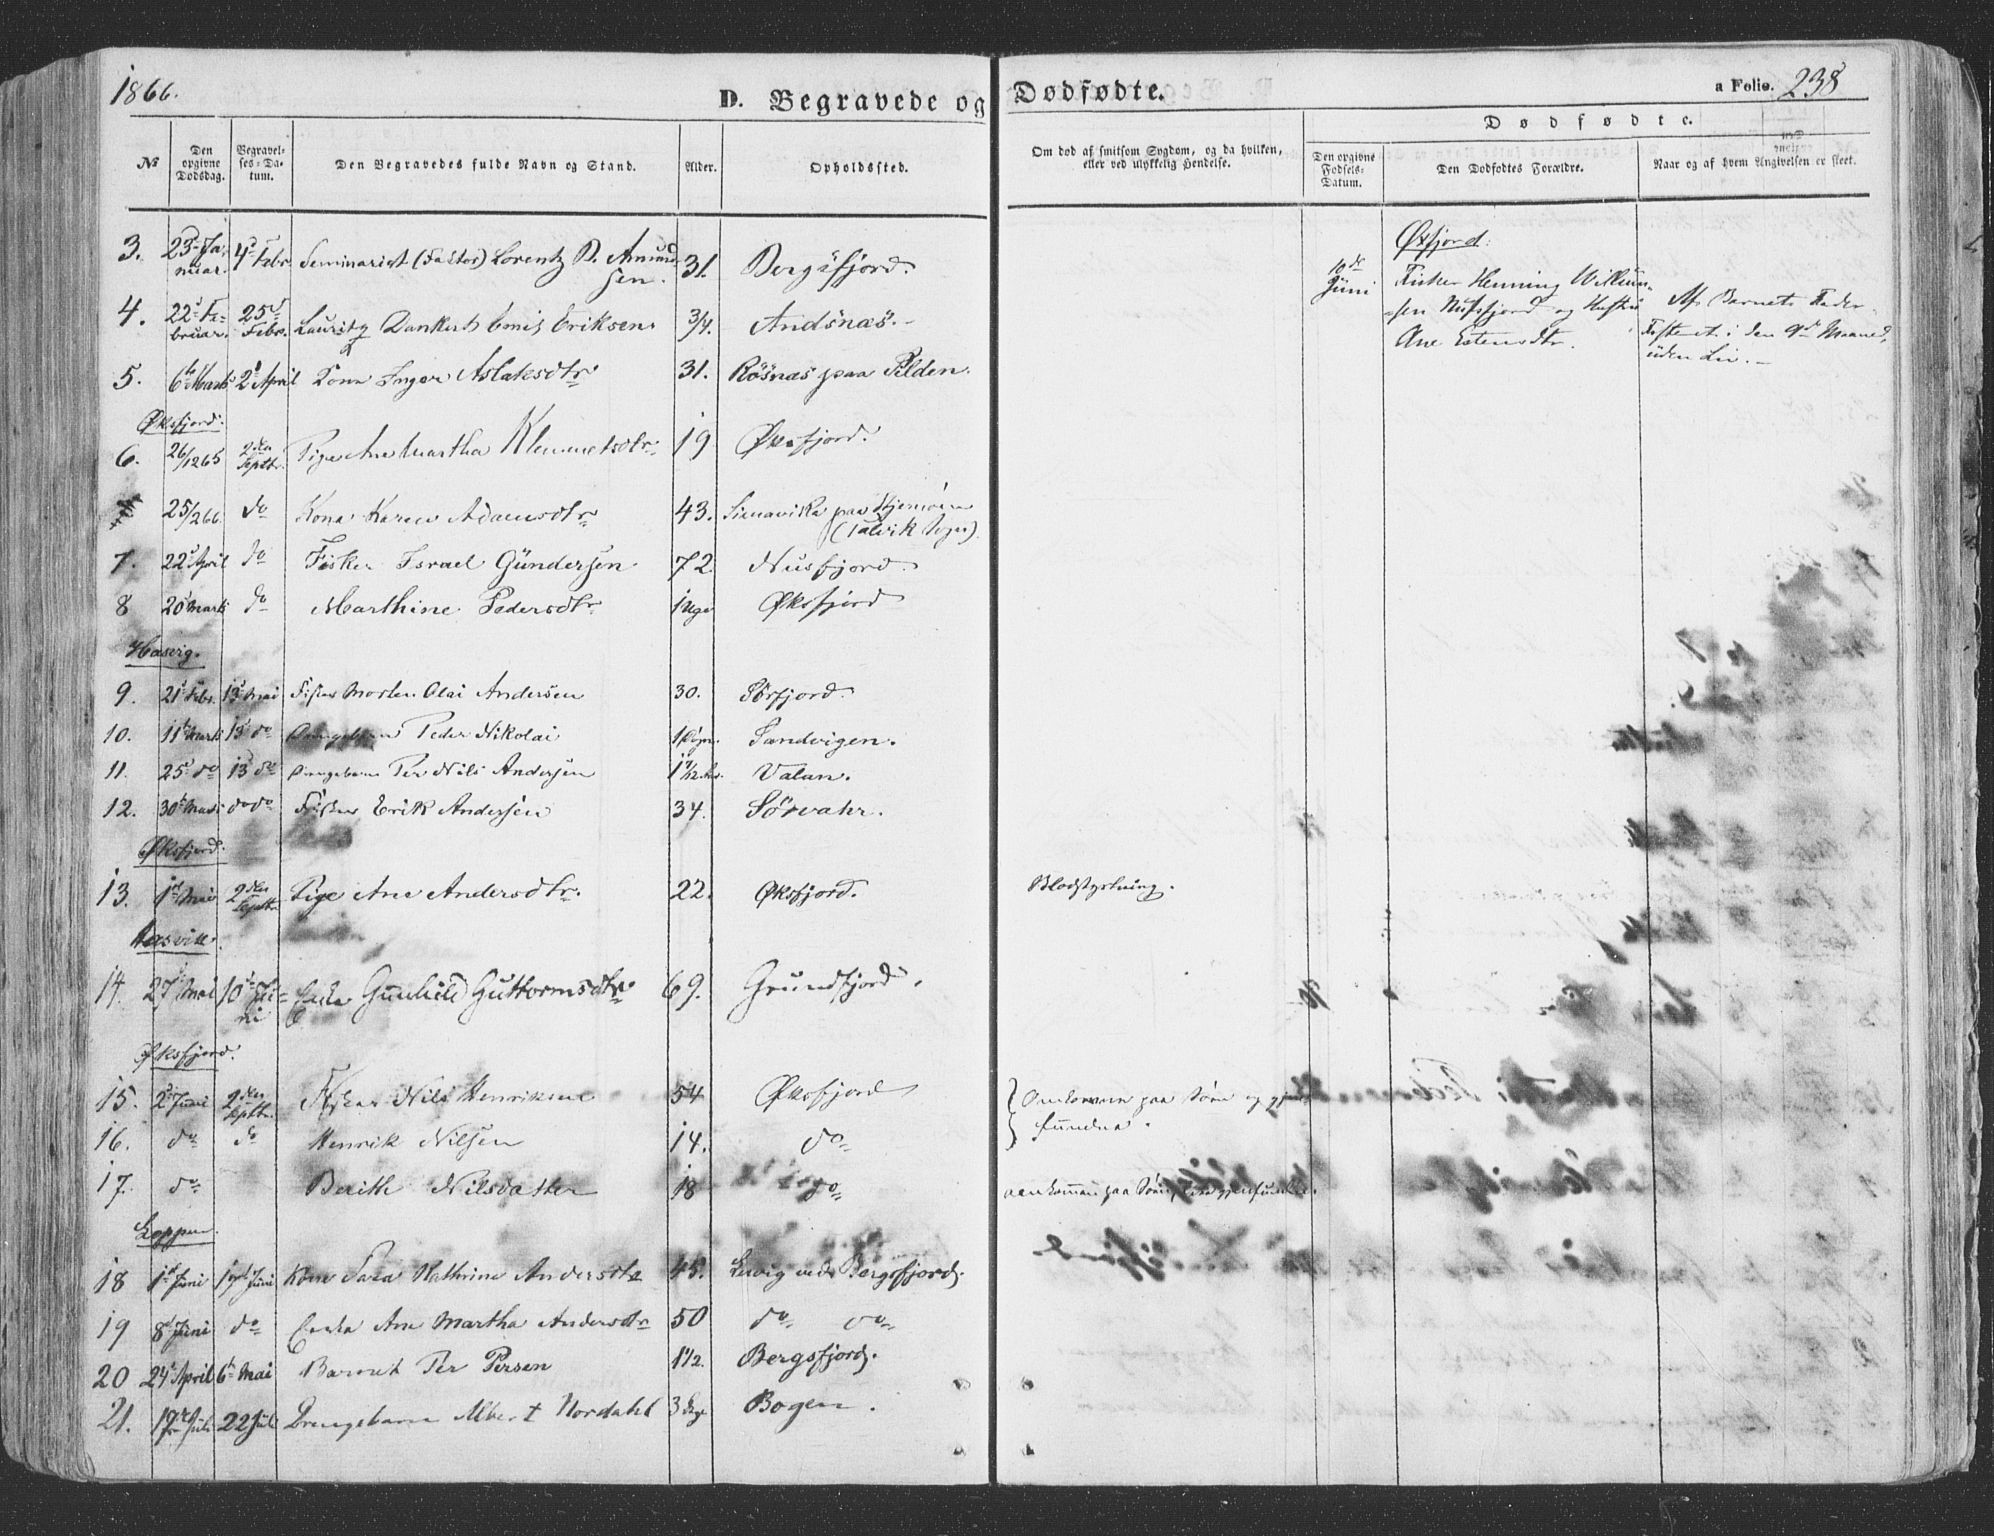 1866.
D. Begravede og Dødfødte.
a Folio. 238
Dødfødte.
№
Den opgivne Dødsdag.
Begravelses-Datum.
Den Begravedes fulde Navn og Stand.
Alder.
Opholdssted.
Om død af smitsom Sygdom, og da hvilken, eller ved ulykkelig Hendelse.
Den opgivne Fødsels-Datum.
Den Dødfødtes Forældre.
Naar og af hvem Angivelsen er skeet.
3. 23de Januar. 4de Febr. Seminarist (Factor) Lorentz D. Amundsen. 31. Bergsfjord.
4. 22de Februar. 25de Febr. Lauritz Dankert Emil Eriksen 3/4. Andsnæs.
5. 6te Marts 2d April Kona Inger Aslaksdtr 31. Røsnæs paa Silden.
Øksfjord.
6. 26/12 65 2den Septbr. Pige Ane Martha Klemmetsdtr 19 Øksfjord.
25/2 66. do Kona Karen Adamsdtr 43. Simavika paa Stjernøen
(Talvik Sogn).
7. 22de April do Fisker Israel Gündersen 72 Nusfjord.
8 20 Marts do Marthine Pedersdtr 1 Uge Øksfjord
Hasvig.
9. 21de Febr. 13de Mai Fisker Morten Olai Andersen 30. Sørfjord.
10. 11te Marts 13de do Drengebarn Peder Nikolai 1 Døgn. Sandvigen.
11. 25de do 13 do Drengebarn Per Nils Andersen Valan.
12. 30te Marts do do Fisker Erik Andersen 34. Sørvahr.
Øksfjord.
13. 1ste Mai 2den Septbr. Pige Ane Andersdtr. 22. Øksfjord. Blodstyrtning.
Hasvik.
14. 27de Mai 10de Juni Enke Gunhild Guttormsdtr 69. Grundfjord.
Øksfjord.
15. 2d Juni 2den Septbr. Fisker Nils Henriksen 54 Øksfjord Omkommen paa Søen og
fundne.
16. do do Henrik Nilsen 14. do
17. do Berith Nilsdatter 18 do omkommen paa Søen,
Loppen.
18 1ste Juni Juni Kone Sara Kathrine Andersdtr 45. Lervig ved Bergsfjord.
19 8d Juni do Enke Ane Martha Andersdtr 50 do do
20 24de April 6te Mai Barnet Per Persen 1 1/2. Bergsfjord.
21. 17de Juli 22 Juli Drengebarn Albert Nordahl 3 Bogen.
Øxfjord:
10de Juni
Fisker Henning Willumsen Nusfjord og Hustru
Ane Estensdtr.
Af Barnets Fader
i den 9de Maaned,
uden Liv.